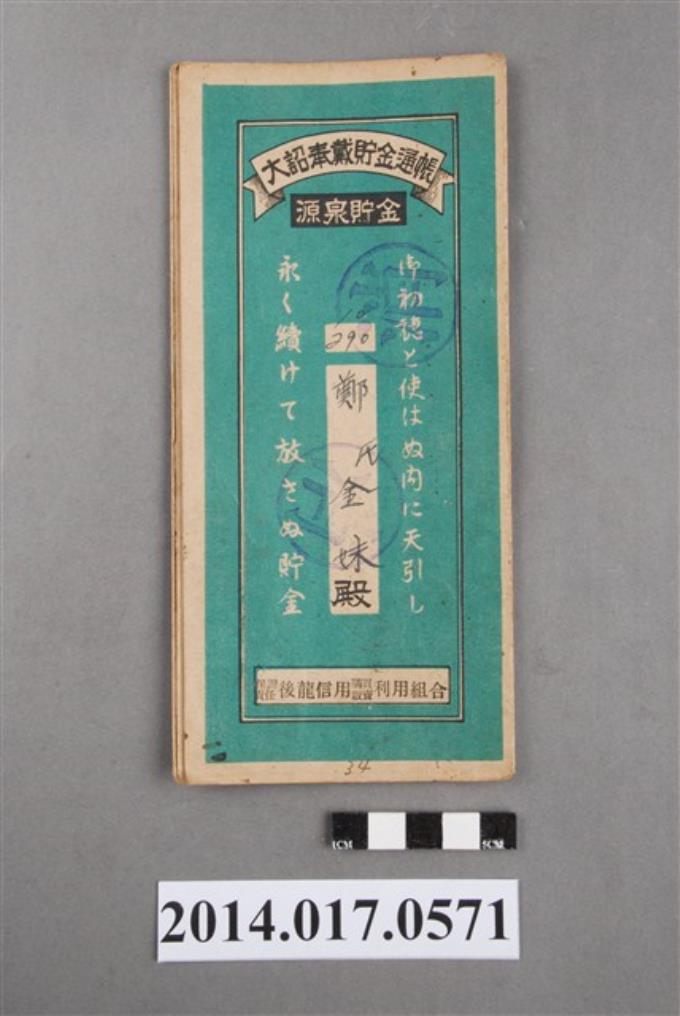 大詔奉戴貯金通帳
源泉貯金
御初穂と使はぬ内に天引し
永く續けて放さぬ貯金
10
290
鄭氏金妹殿
保證責任後龍信用購買販賣利用組合
34
1CM
5CM
2014.017.0571